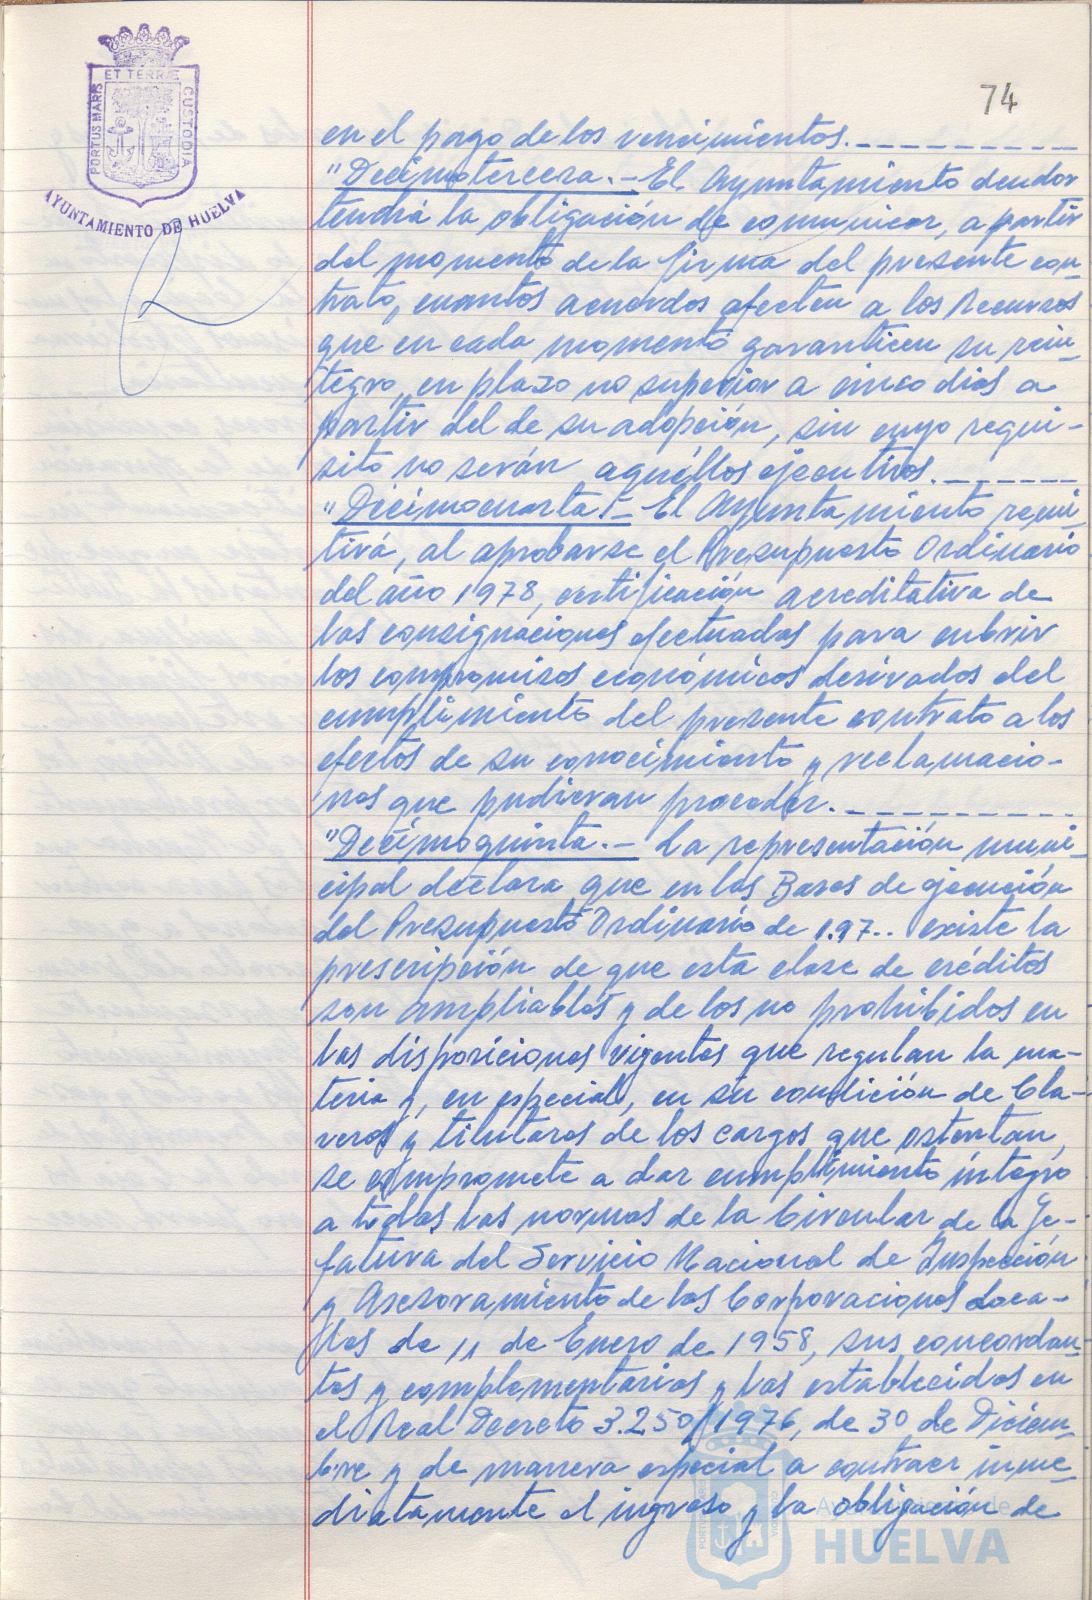 ET TERRÆ
PORTUS MARIS
CUSTODIA
AYUNTAMIENTO DE HUELVA
74
en el pago de los vencimientos.
"Decimotercera.- El Ayuntamiento deudor
tendrá la obligación de comunicar, a partir
del momento de la firma del presente con-
trato, cuantos acuerdos afecten a los Recursos
que en cada momento garanticen su rein-
tegro, en plazo no superior a cinco dias a
partir del de su adopción, sin cuyo requi-
sito no serán aquéllos ejecutivos.
"Decimocuarta.- El Ayuntamiento remi-
tirá, al aprobarse el Presupuesto Ordinario
del año 1978, certificación acreditativa de
las consignaciones efectuadas para cubrir
los compromisos económicos derivados del
cumplimiento del presente contrato a los
efectos de su conocimiento y reclamacio-
nes que pudieran proceder.
"Decimoquinta.- La representación muni-
cipal declara que en las Bases de ejecución
del Presupuesto Ordinario de 1.97.. existe la
prescripción de que esta clase de créditos
son ampliables y de los no prohibidos en
las disposiciones vigentes que regulan la ma-
teria y, en especial, en su condición de Cla-
veros y titulares de los cargos que ostentan,
se compromete a dar cumplimiento íntegro
a todas las normas de la Circular de la Je-
fatura del Servicio Nacional de Inspección
y Asesoramiento de las Corporaciones Loca-
les de 11 de Enero de 1958, sus concordan-
tes y complementarias y las establecidas en
el Real Decreto 3.250/1976, de 30 de Diciem-
bre y de manera especial a contraer inme-
diatamente el ingreso y la obligación de
Ayuntamiento de
HUELVA